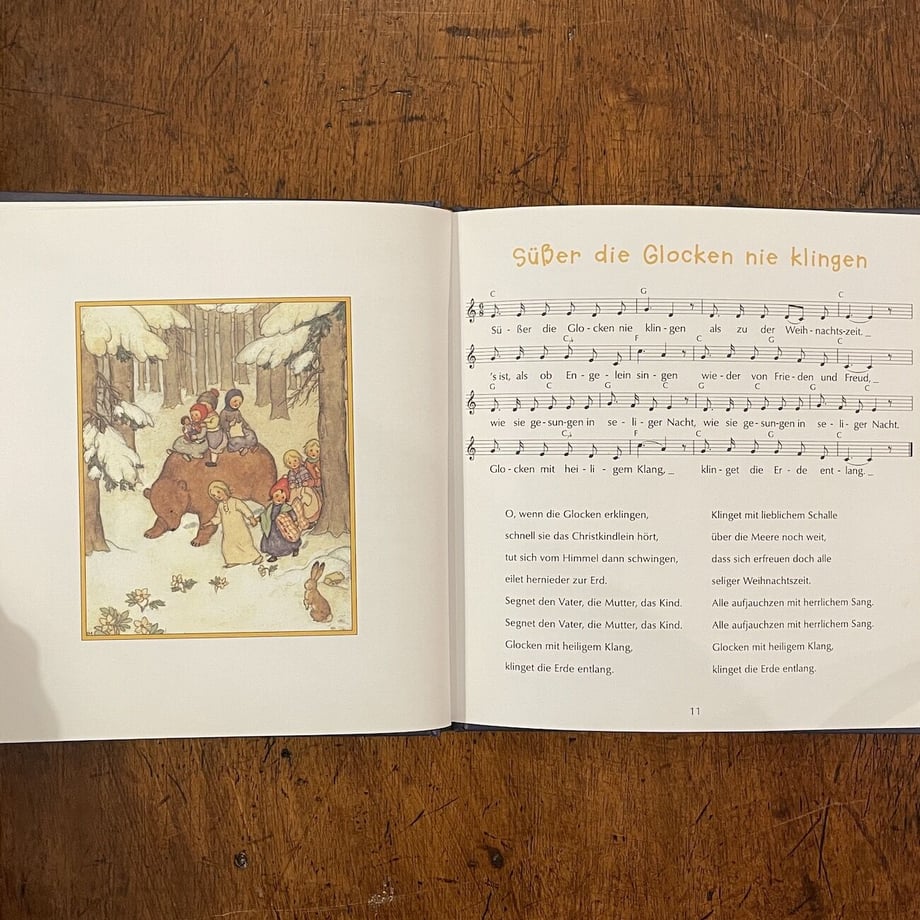 Süßer die Glocken nie klingen
C G C
Sü - ßer die Glo - cken nie klin - gen als zu der Weih - nachts - zeit. _
C4 F C G C
's ist, als ob En - ge - lein sin - gen wie - der von Frie - den und Freud, _
G C G C G C G C
wie sie ge - sun - gen in se - li - ger Nacht, wie sie ge - sun - gen in se - li - ger Nacht.
C4 F C G C
Glo - cken mit hei - li - gem Klang, _ klin - get die Er - de ent - lang. _
O, wenn die Glocken erklingen,
schnell sie das Christkindlein hört,
tut sich vom Himmel dann schwingen,
eilet hernieder zur Erd.
Segnet den Vater, die Mutter, das Kind.
Segnet den Vater, die Mutter, das Kind.
Glocken mit heiligem Klang,
klinget die Erde entlang.
Klinget mit lieblichem Schalle
über die Meere noch weit,
dass sich erfreuen doch alle
seliger Weihnachtszeit.
Alle aufjauchzen mit herrlichem Sang.
Alle aufjauchzen mit herrlichem Sang.
Glocken mit heiligem Klang,
klinget die Erde entlang.
11